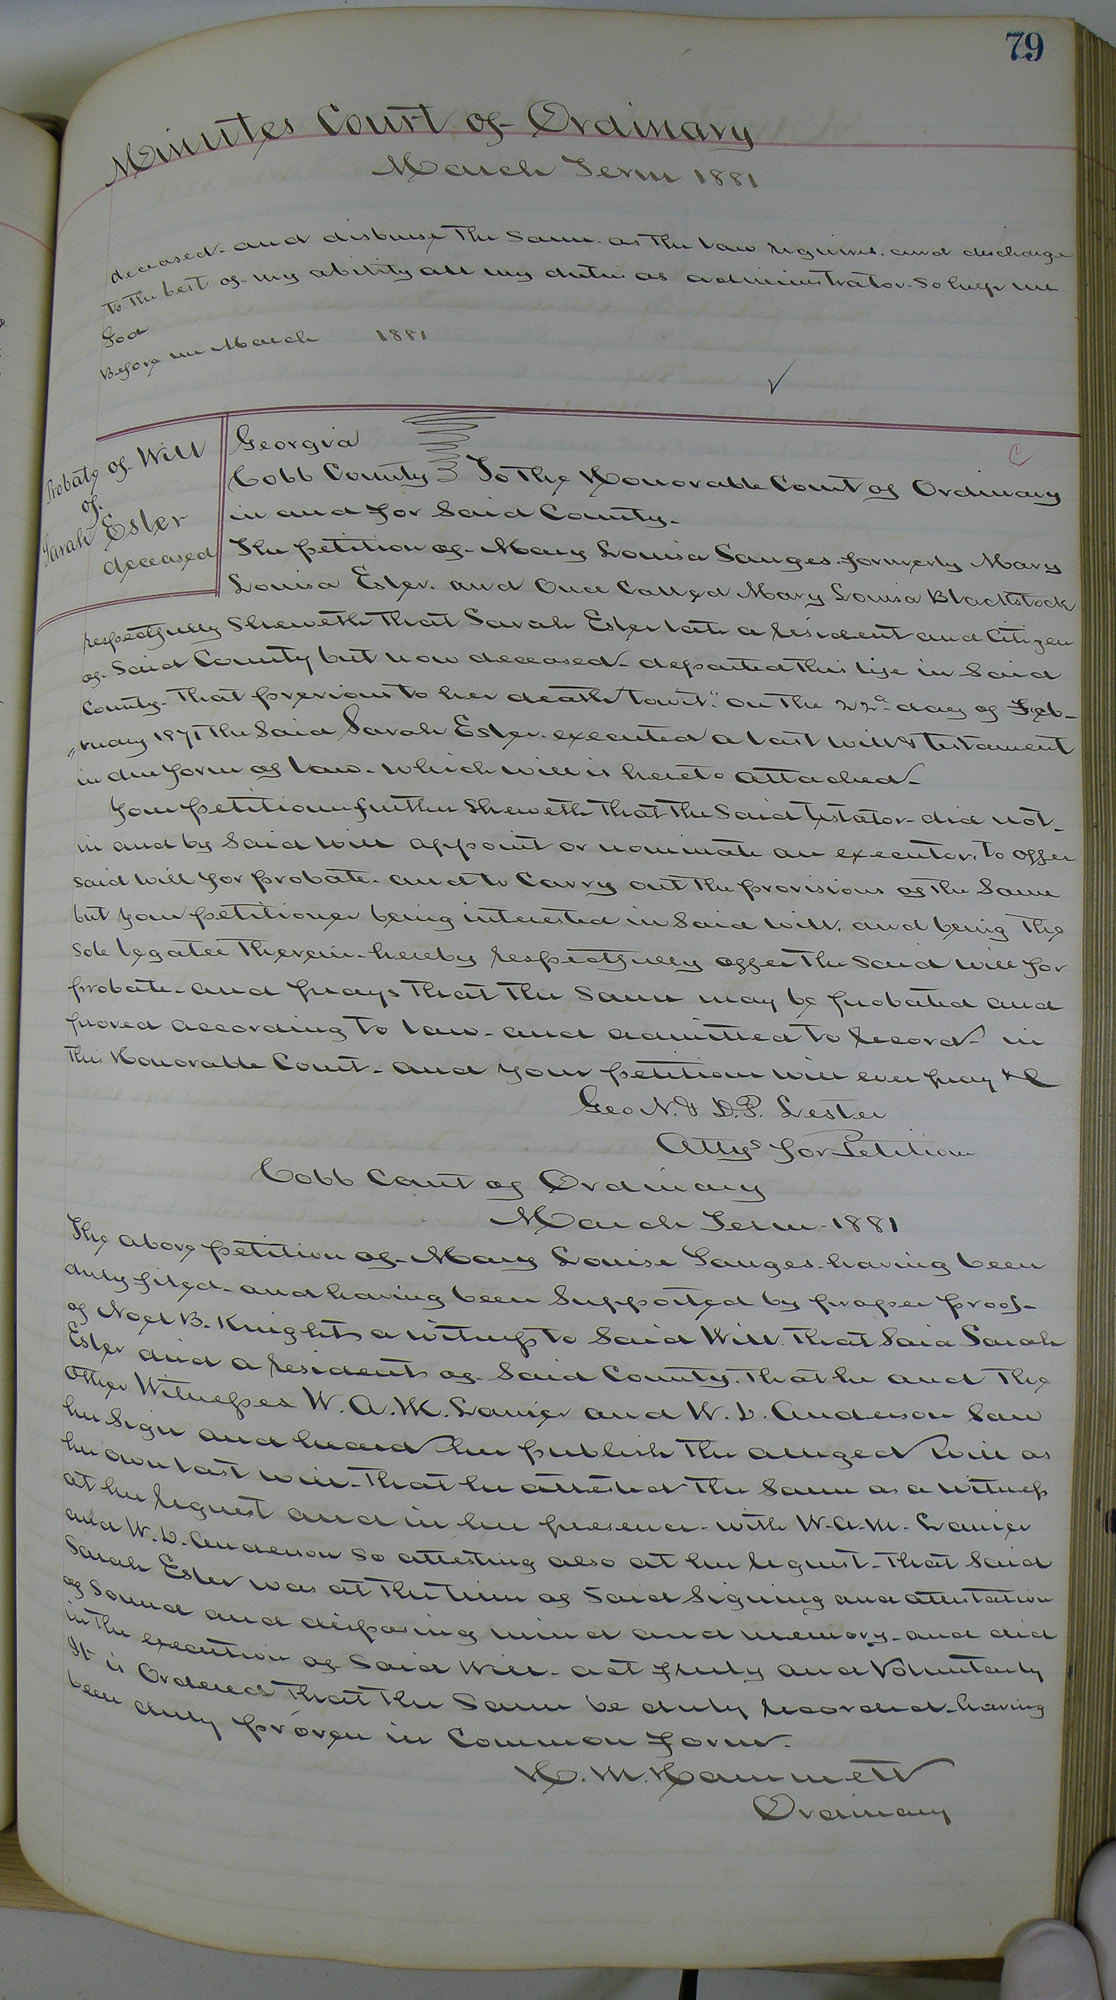 79
Minutes Court of Ordinary
March Term 1881
deceased and disburse the same as the law requires, and discharge
to the best of my ability all my duties as administrator. So help me
God
Before me March 1881
Probate of Will
of
Sarah Esler
deceased
Georgia
Cobb County To the Honorable Court of Ordinary
in and for Said County.
The petition of Mary Louisa Sanges formerly Mary
Louisa Esler. and Once Called Mary Louisa Blackstock
respectfully Sheweth that Sarah Esler late a resident and Citizen
of Said County but now deceased departed this life in Said
County. That previous to her death "towit:" on the 22d day of Feb-
"ruary 1871 the Said Sarah Esler executed a last will & testament
in due form of law. which will is hereto attached.
Your petitioner further Sheweth that the Said testator did not
in and by Said will appoint or nominate an executor, to offer
said will for probate. and to Carry out the provisions of the Same
but your petitioner being interested in Said will, and being the
sole legatee therein hereby respectfully offer the said will for
probate. and prays that the Same may be probated and
proved according to law. and admitted to record in
this Honorable Court. and your petition will ever pray &C
Geo N. & D.P. Lester
Attys for Petition
Cobb Court of Ordinary
March Term 1881
The above petition of Mary Louise Sanges having been
duly filed and having been Supported by proper proof
of Noel B. Knight a witness to Said Will. That Said Sarah
Esler did a resident of Said County. That he and the
other Witnesses W. A. M. Lanier and W. D. Anderson Saw
her Sign and heard her publish the alleged Will as
her own last will. That he attested the Same as a witness
at her request and in her presence with W. A. M. Lanier
and W. D. Anderson So attesting also at her request. That Said
Sarah Esler was at the time of Said Signing and attestation
of Sound and disposing mind and memory. and did
in the execution of Said Will act freely and Voluntarily
It is Ordered that the Same be duly recorded having
been duly proven in Common form.
H. M. Hammett
Ordinary